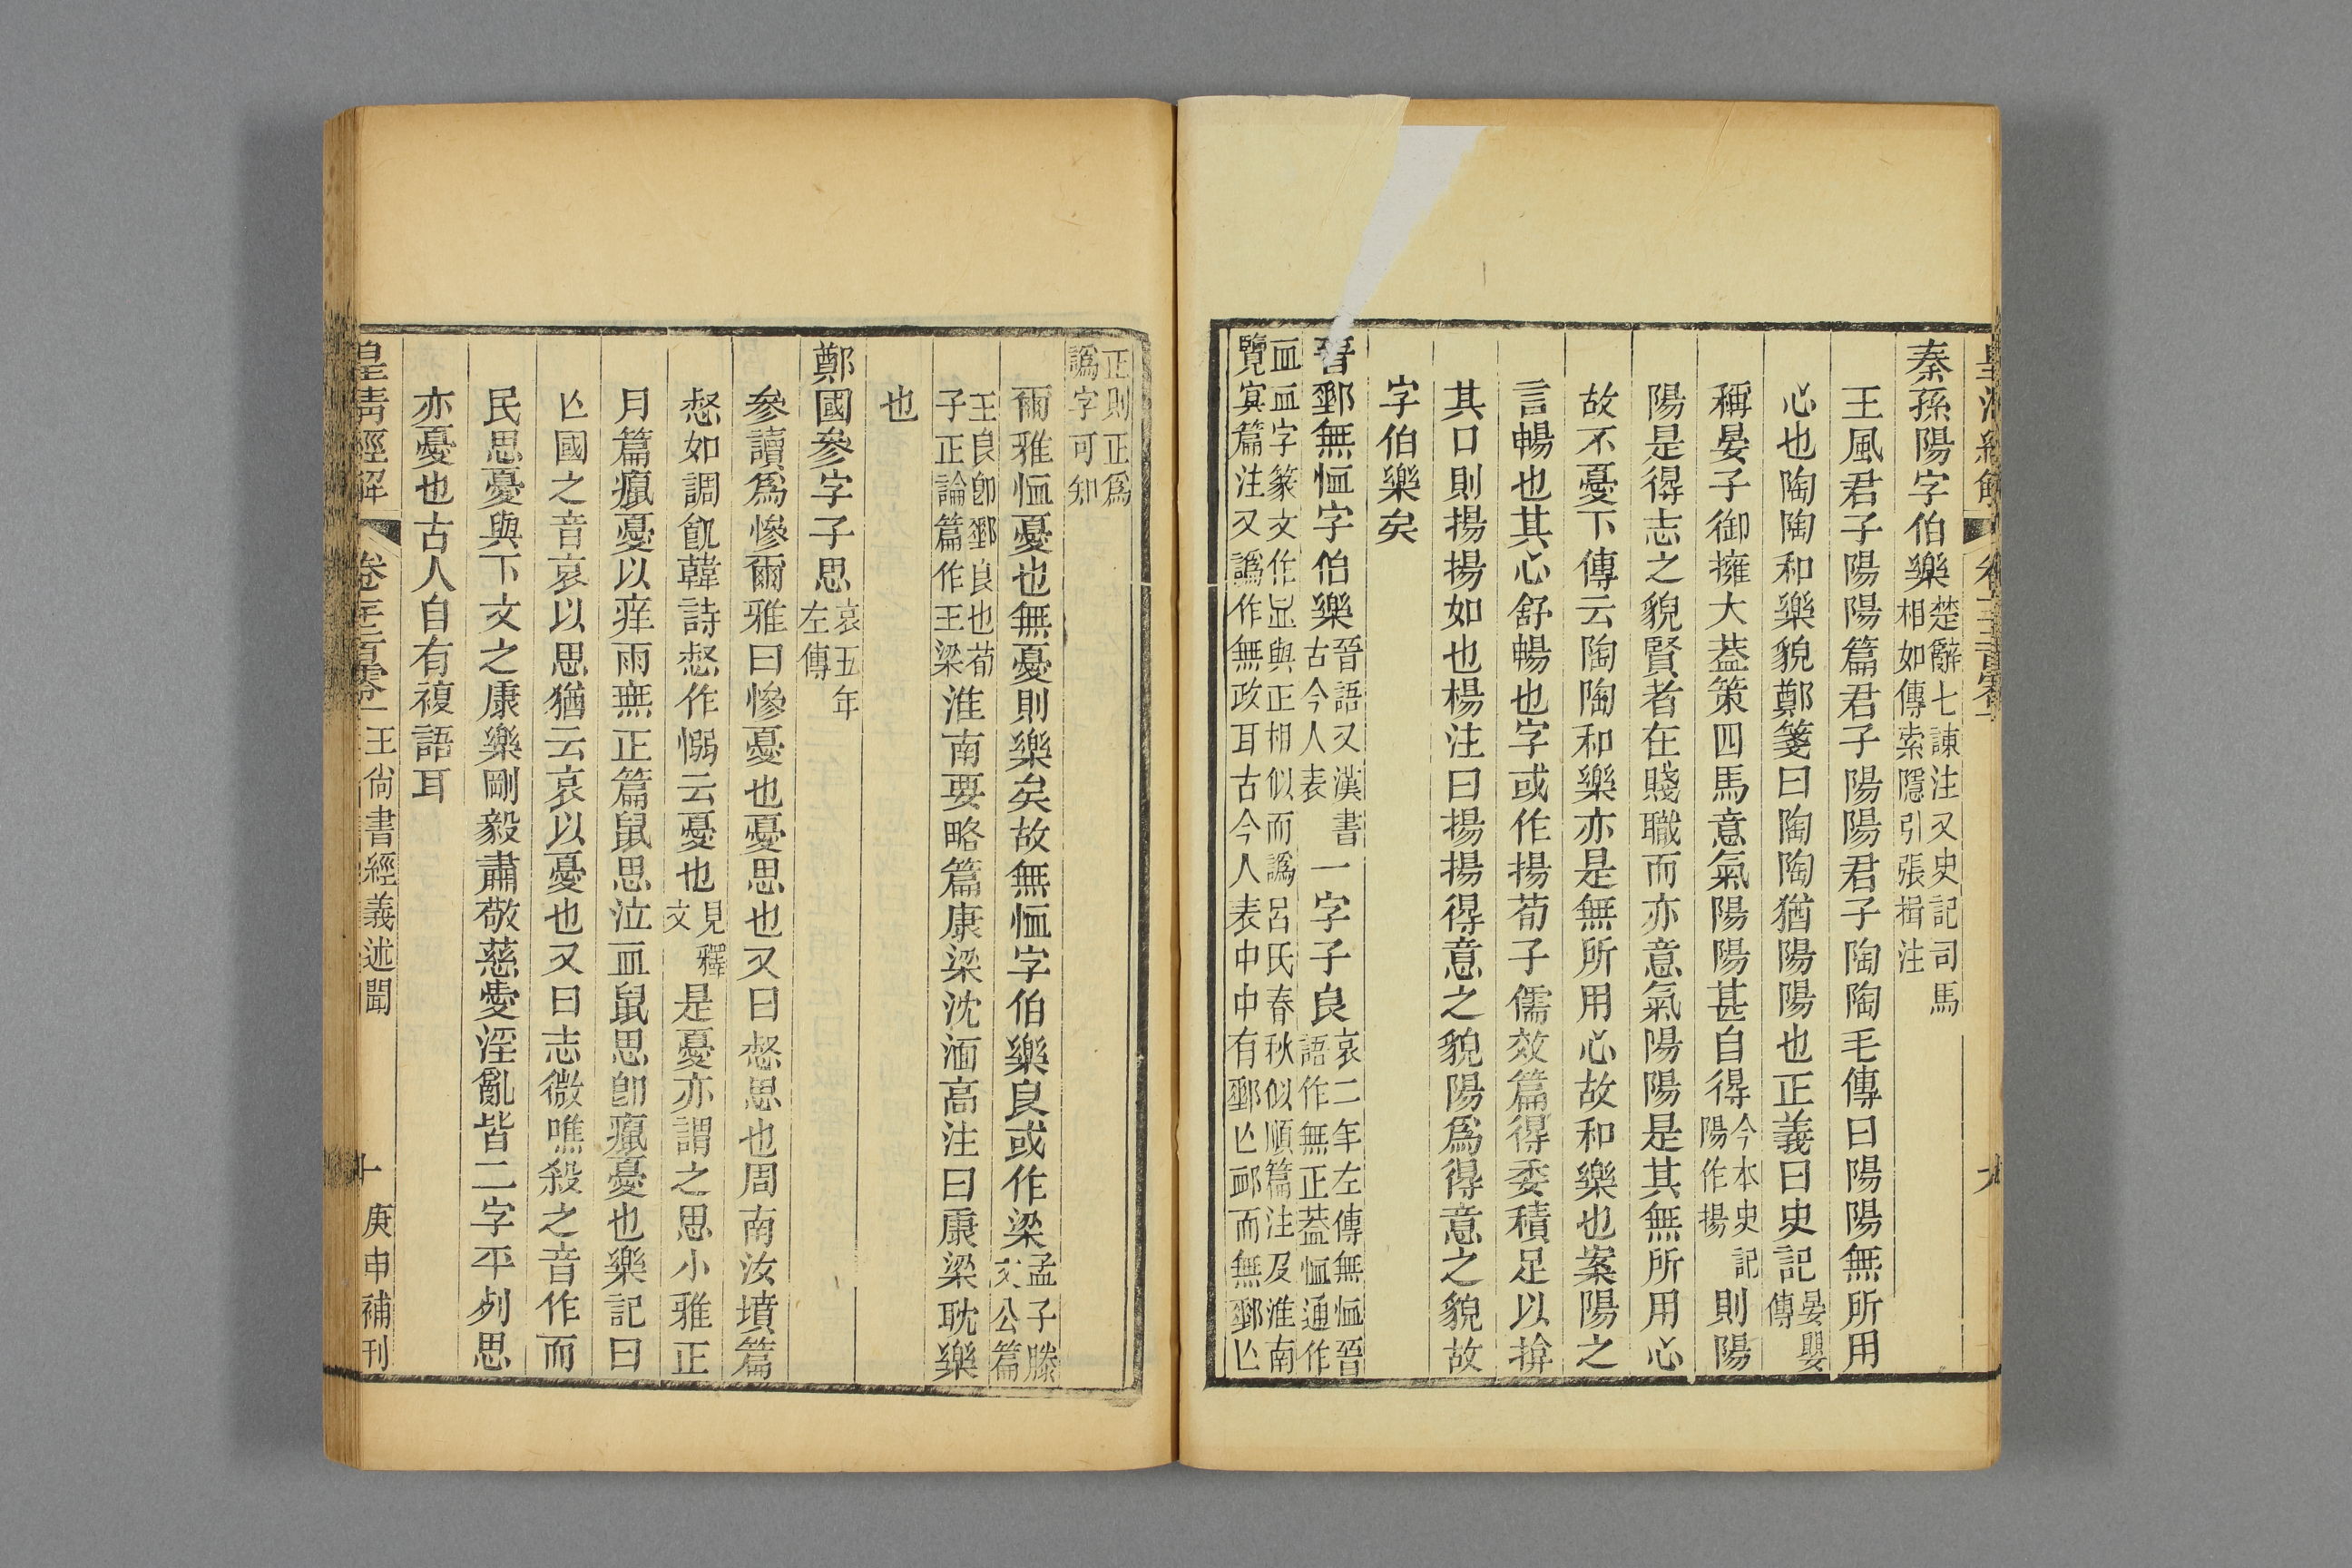 秦孫陽字伯樂楚辭七諫注又史記司馬相如傳索隱引張揖注
王風君子陽陽篇君子陽陽君子陶陶毛傳曰陽陽無所用
心也陶陶和樂貌鄭箋曰陶陶猶陽陽也正義曰史記晏嬰傳
稱晏子御擁大葢策四馬意氣陽陽甚自得今本史記陽作揚則陽
陽是得志之貌賢者在賤職而亦意氣陽陽是其無所用心
故不憂下傳云陶陶和樂亦是無所用心故和樂也案陽之
言暢也其心舒暢也字或作揚荀子儒效篇得委積足以揜
其口則揚揚如也楊注曰揚揚得意之貌陽爲得意之貌故
字伯樂矣
晉郵無恤字伯樂晉語又漢書古今人表一字子良哀二年左傳無恤晉語作無正葢恤通作
䘏血字篆文作𥁕與正相似而譌呂氏春秋似順篇注及淮南
覽冥篇注又譌作無政耳古今人表中中有郵亾卹而無郵亾
正則正爲
譌字可知
爾雅恤憂也無憂則樂矣故無恤字伯樂良或作梁孟子滕文公篇
王良卽郵良也荀子正論篇作王梁淮南要略篇康梁沈湎高注曰康梁耽樂
也
鄭國參字子思哀五年左傳
參讀爲慘爾雅曰慘憂也憂思也又曰惄思也周南汝墳篇
惄如調飢韓詩惄作愵云憂也見釋文是憂亦謂之思小雅正
月篇癙憂以痒雨無正篇鼠思泣血鼠思卽癙憂也樂記曰
亾國之音哀以思猶云哀以憂也又曰志微噍殺之音作而
民思憂與下文之康樂剛毅肅敬慈愛淫亂皆二字平列思
亦憂也古人自有複語耳
皇淸經解 卷一千二百零一 王尙書經義述聞 十 庚申補刊